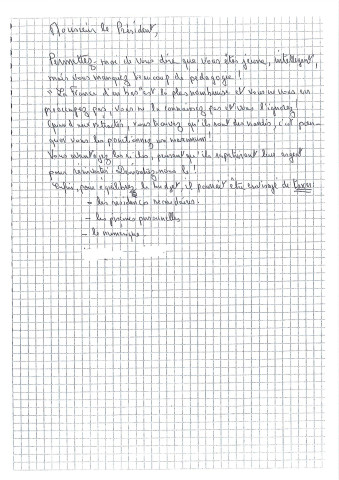 Monsieur le Président,
Permettez-moi de vous dire que vous êtes jeune, intelligent,
mais vous manquez beaucoup de pédagogie !
"La France d'en bas" est la plus nombreuse et vous ne vous en
préoccupez pas, vous ne la connaissez pas et vous l'ignorez !
Quand aux retraités, vous trouvez qu'ils sont des nantis, c'est pour-
quoi vous les ponctionnez au maximum !
Vous avantagez les riches, pensant qu'ils rapatrieront leur argent
pour réinvestir ! Démontrez-nous le !
Enfin, pour équilibrer le budget, il pourrait être envisagé de taxer
- les résidences secondaires.
- les piscines personnelles
- le numérique